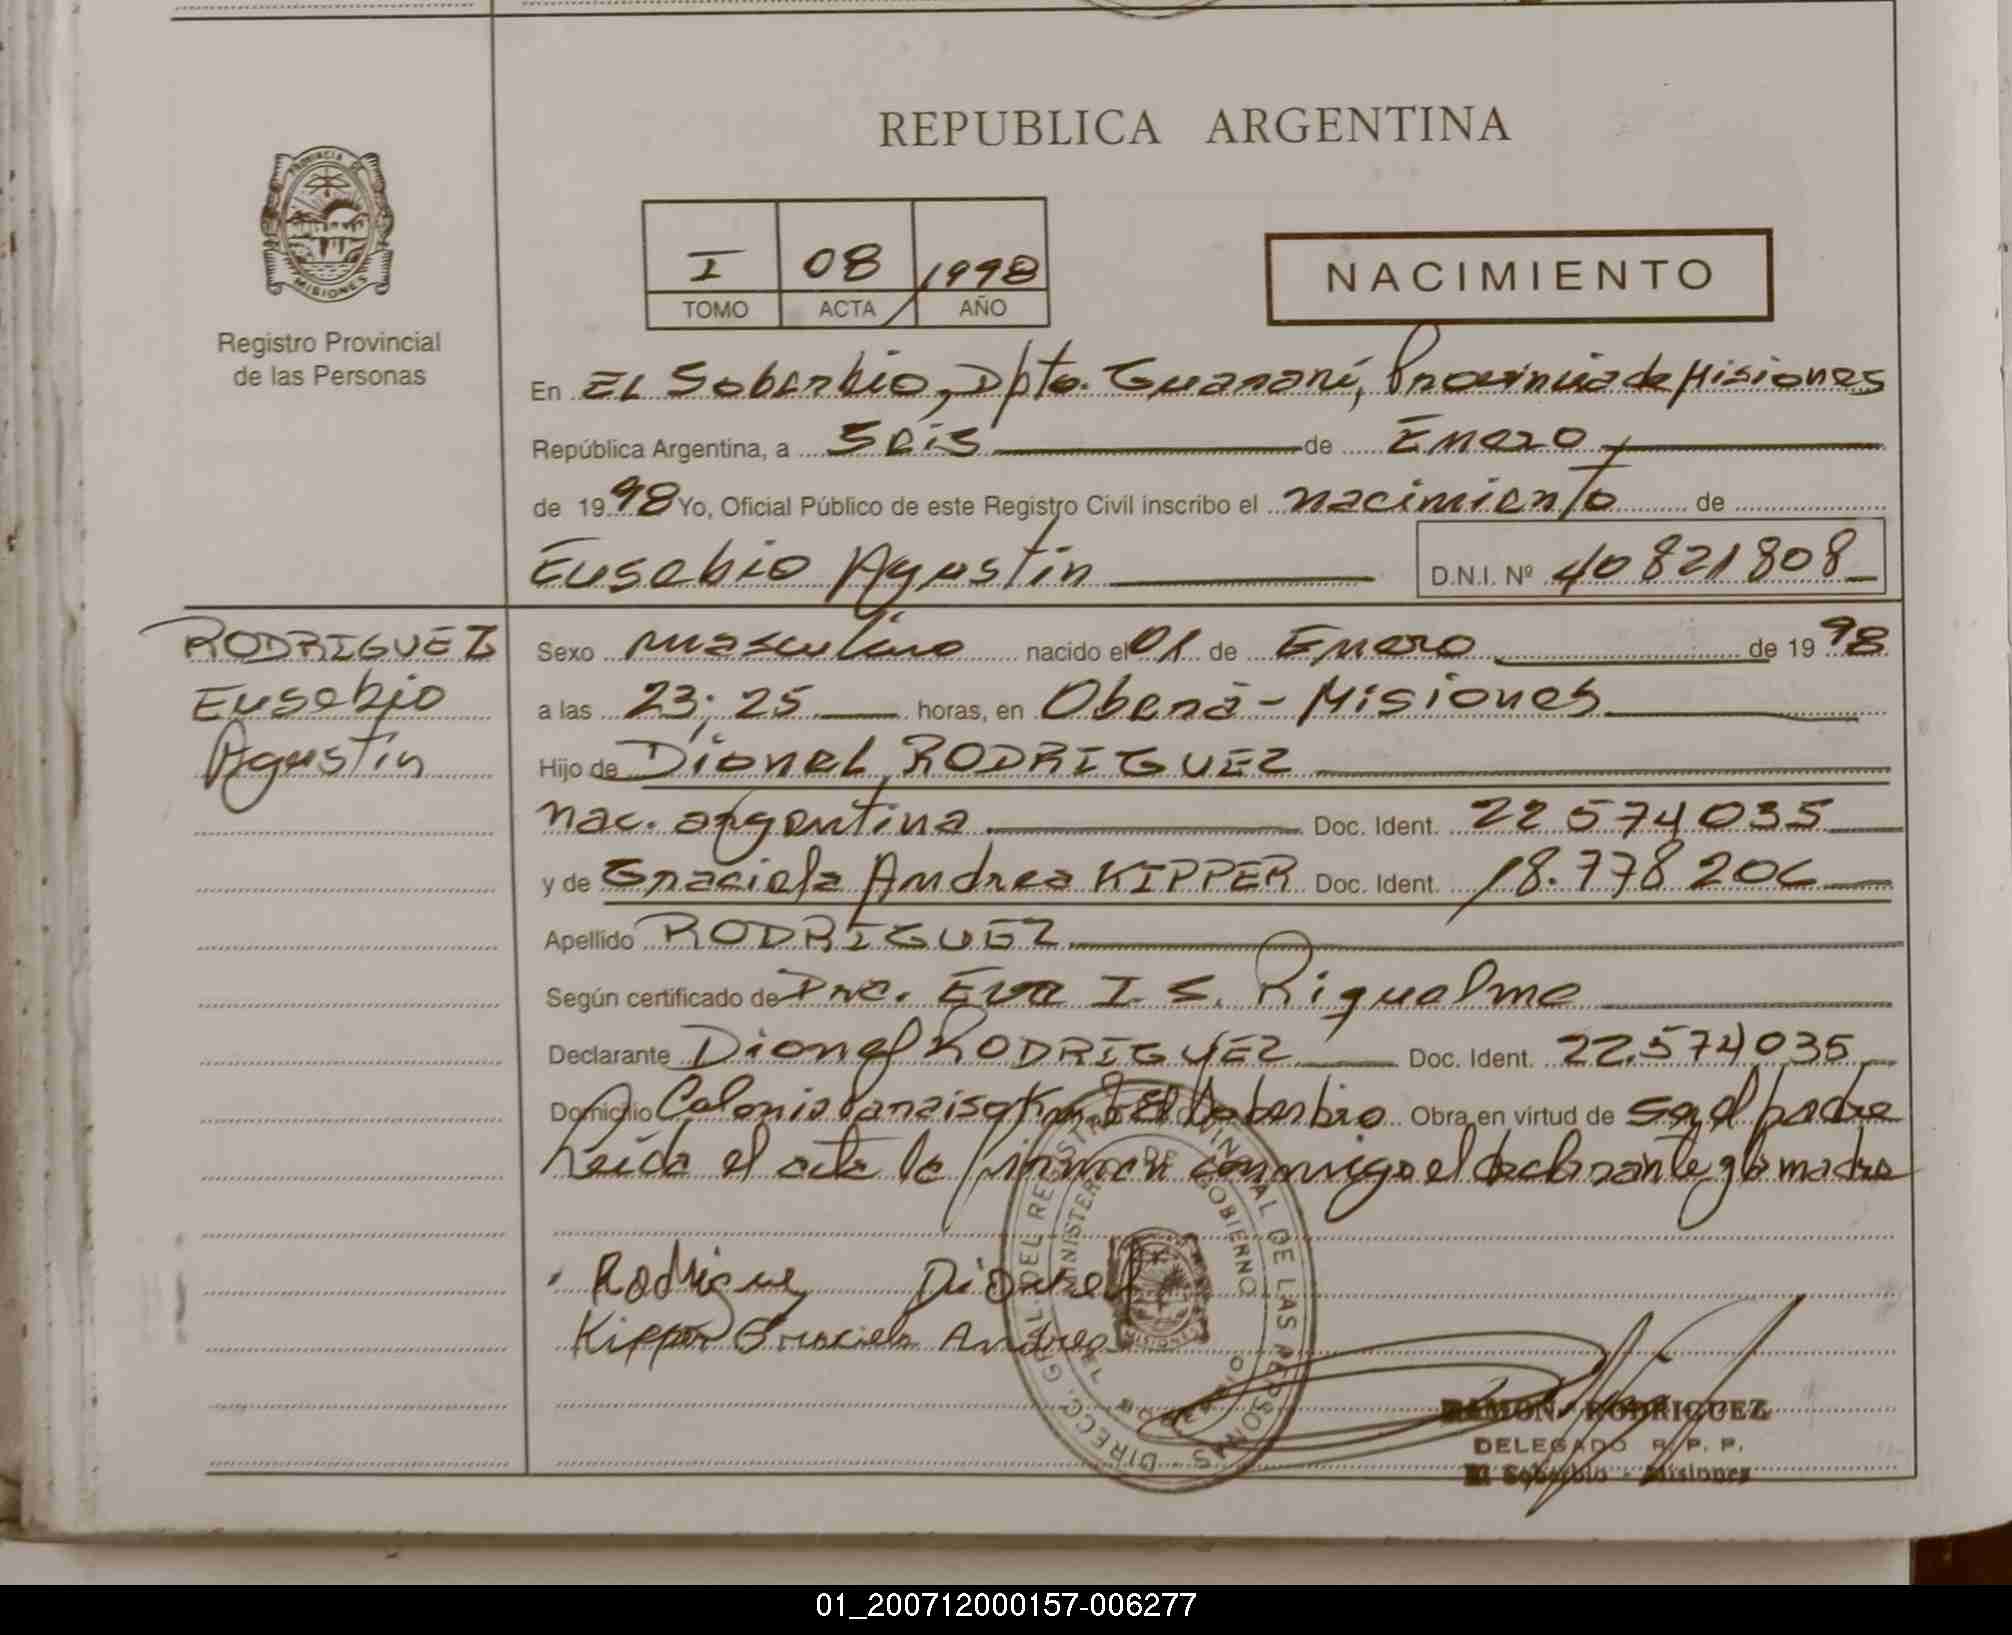 REPUBLICA ARGENTINA
PROVINCIA DE
MISIONES
Registro Provincial
de las Personas
I 08 1998
TOMO ACTA AÑO
NACIMIENTO
En EL Soberbio, Dpto. Guaraní, Provincia de Misiones
República Argentina, a Seis de Enero
de 1998 Yo, Oficial Público de este Registro Civil inscribo el nacimiento de
Eusebio Agustín D.N.I. Nº 40821808
RODRIGUEZ
Eusebio
Agustín
Sexo masculino nacido el 01 de Enero de 1998
a las 23:25 horas, en Oberá - Misiones
Hijo de Dionel RODRIGUEZ
nac. argentina Doc. Ident. 22574035
y de Graciela Andrea KIPPER Doc. Ident. 18.778206
Apellido RODRIGUEZ
Según certificado de Dra. Eva I. S. Riquelme
Declarante Dionel RODRIGUEZ Doc. Ident. 22.574035
Domicilio Colonia Paraiso Km El Soberbio Obra en virtud de ser el padre
Leída el acta la firman conmigo el declarante y la madre
Rodriguez Dionel
Kipper Graciela Andrea
DIRECC. GRAL. DEL REGISTRO PROVINCIAL DE LAS PERSONAS
MINISTERIO DE GOBIERNO
EL SOBERBIO
MISIONES
RAMON RODRIGUEZ
DELEGADO R. P. P.
El Soberbio - Misiones
01_200712000157-006277